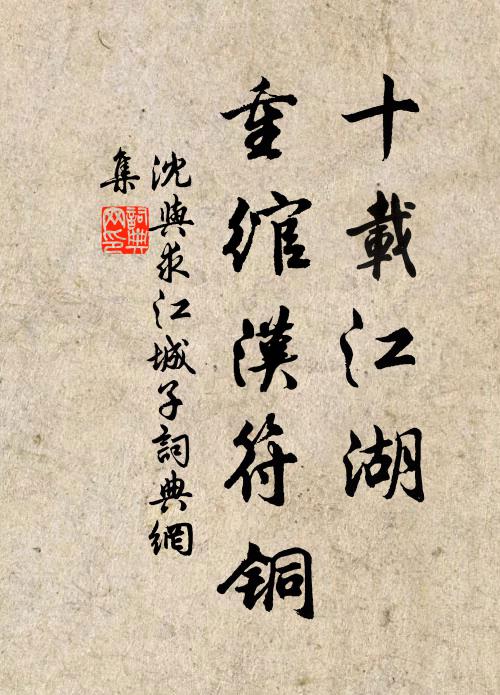 十載江湖
重綰漢符銅
沈與求江城子詞典網
集
詞典網印